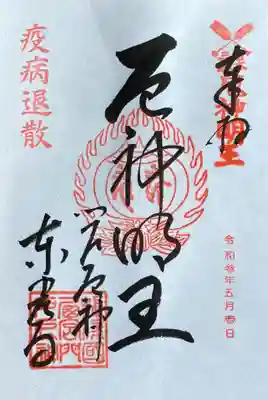 奉拝
令和参年五月日
厄神明王
門戸厄神
東光寺
疫病退散